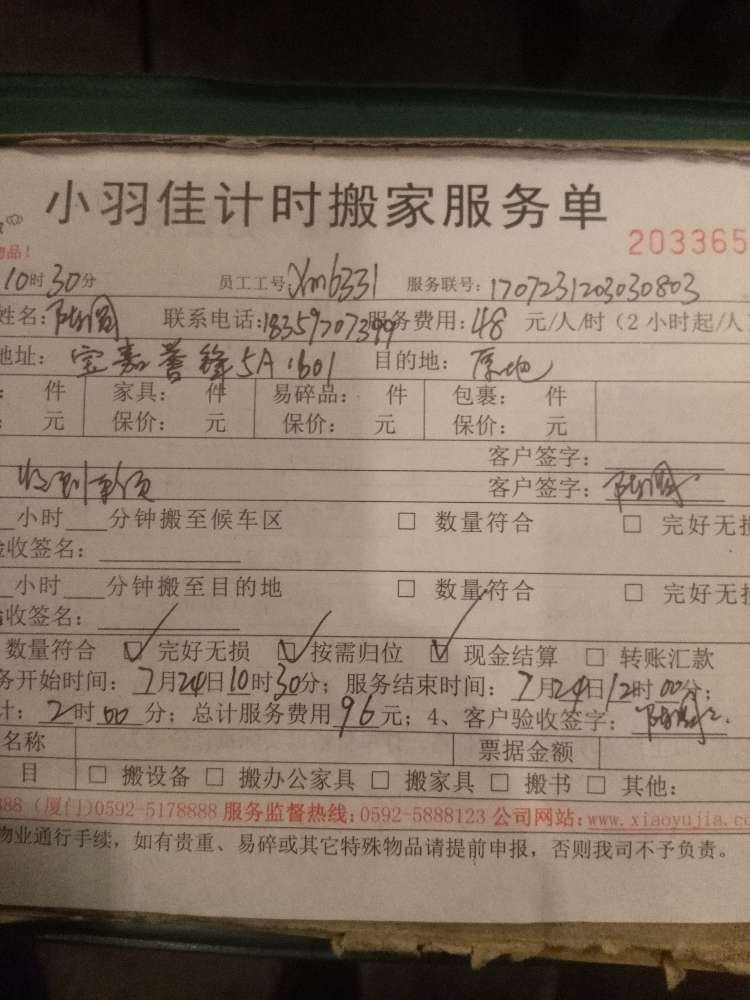 小羽佳计时搬家服务单
203365
物品!
10时30分 员工工号:Xm6331 服务联号:1707231203030803
姓名: 联系电话:18359707399服务费用:48 元/人/时(2小时起/人
地址: 宝嘉誉峰5A 1601 目的地: 原地
: 件 家具: 件 易碎品: 件 包裹: 件
: 元 保价: 元 保价: 元 保价: 元
客户签字:
收到事项 客户签字:
小时 分钟搬至候车区 □ 数量符合 □ 完好无损
验收签名:
小时 分钟搬至目的地 □ 数量符合 □ 完好无损
验收签名:
数量符合 ☑ 完好无损 ☑ 按需归位 ☑ 现金结算 □ 转账汇款
务开始时间: 7月24日10时30分; 服务结束时间: 7月24日12时00分;
计: 2时00分; 总计服务费用96元; 4、客户验收签字:
名称 票据金额
目 □ 搬设备 □ 搬办公家具 □ 搬家具 □ 搬书 □ 其他:
888 (厦门)0592-5178888 服务监督热线:0592-5888123 公司网站:www.xiaoyujia.co
物业通行手续,如有贵重、易碎或其它特殊物品请提前申报,否则我司不予负责。